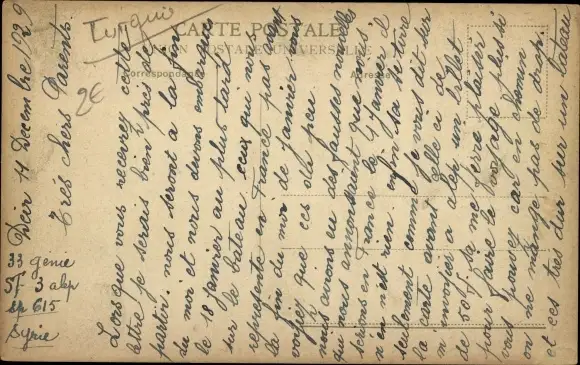 CARTE POSTALE
UNION POSTALE UNIVERSELLE
Correspondance
Adresse
Turquie
2€
14 Decembre 1929
Très chers Parents.
33 genie
3 alep
sp 615
Syrie
Lors que vous recevrez cette
lettre je serais bien près de
partir. nous seront a la fin
du moi et nous devons embarquer
le 18 janvier au plus tard
sur le bateau ceux qui nous
représente en France pas avant
la fin du moi de janvier. vous
voyez que ces du peu.
nous avons eu des fausses nouvelles
qu nous annonsaient que nous
serions en France le 4 janvier il
n'en n'est rien. enfin sa se tire
seulement comme je vous dit sur
la carte avant celle ci de
m envoyer a alep un billet
de 50f sa me ferre plaisir
pour faire le voyage plus si
vous pouvez car en chemin
on ne mange pas de trop.
et ces très dur sur un bateau